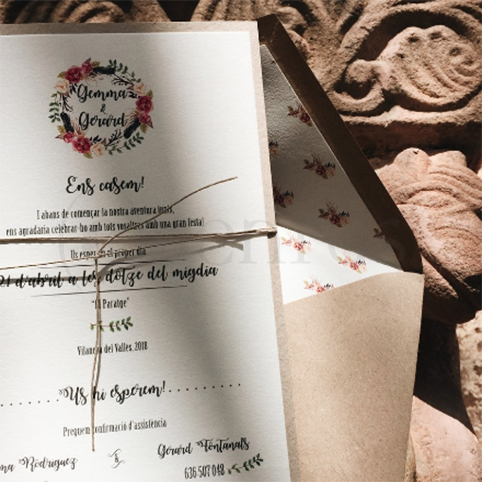 Gemma
&
Gerard
Ens casem!
I abans de començar la nostra aventura junts,
ens agradaria celebrar-ho amb tots vosaltres amb una gran festa!
Us esperem el proper dia
21 d'abril a les dotze del migdia
"El Paratge"
Vilanova del Vallès, 2018
Us hi esperem!
Preguem confirmació d'assistència
Rodríguez & Gerard Fontanals
636 507 048